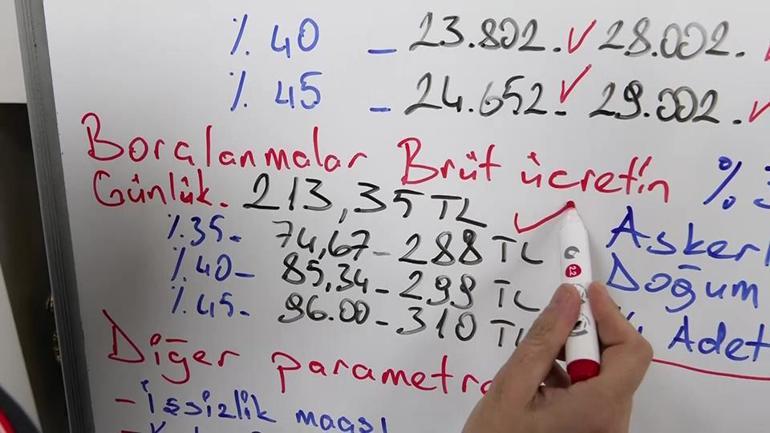 % 40 - 23.802. ✓ 28.002.
% 45 - 24.652. ✓ 29.002. ✓
Borçlanmalar Brüt ücretin %
Günlük. 213,35 TL ✓
%35- 74,67-288 TL
%40- 85,34-299 TL
%45- 96.00-310 TL
Asker
Doğum
Adet
Diğer parametre
- İşsizlik maaşı